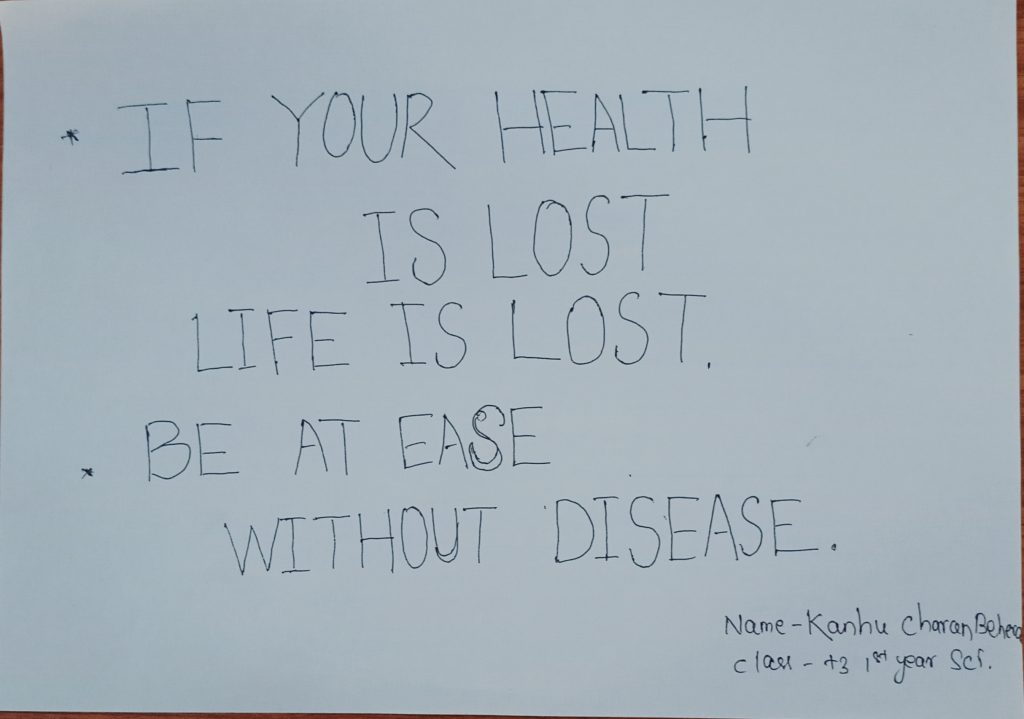 * IF YOUR HEALTH
IS LOST
LIFE IS LOST.
* BE AT EASE
WITHOUT DISEASE.
Name-Kanhu Charan Behera
Class - +3 1st year Sci.